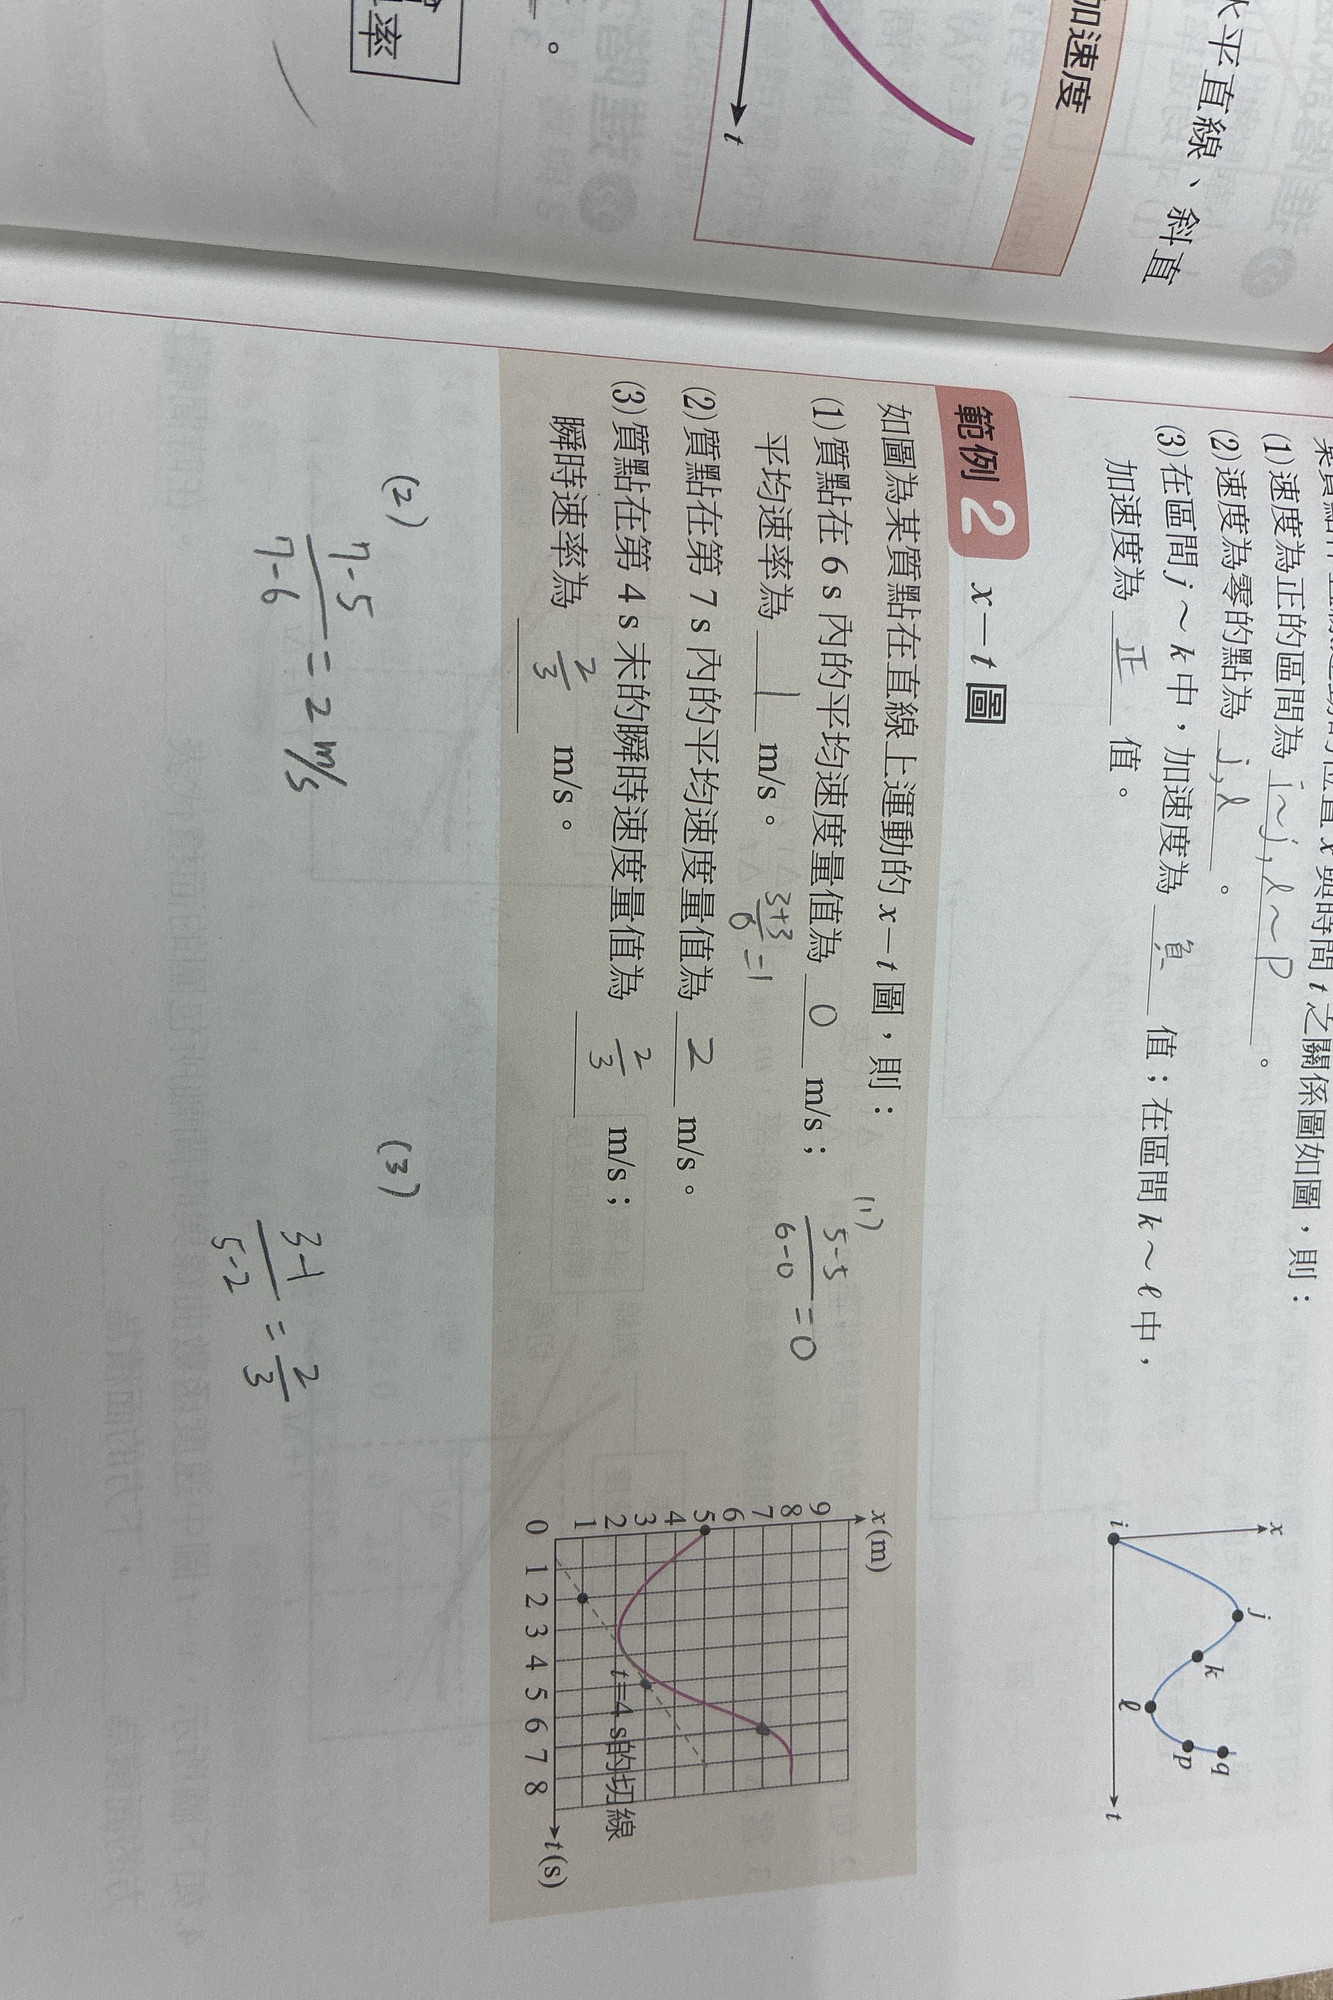 水平直線、斜直
加速度
t
。
率
(1)速度為正的區間為 i~j, l~p 。
(2)速度為零的點為 j,l 。
(3)在區間 j～k 中，加速度為 負 值；在區間 k～ℓ 中，
加速度為 正 值。
x
j
k
q
p
ℓ
i
t
範例 2 x－t 圖
如圖為某質點在直線上運動的 x－t 圖，則：
(1)質點在 6 s 內的平均速度量值為 0 m/s；
平均速率為 1 m/s。
3+3/6 = 1
(1) 5-5/6-0 = 0
(2)質點在第 7 s 內的平均速度量值為 2 m/s。
(3)質點在第 4 s 末的瞬時速度量值為 2/3 m/s；
瞬時速率為 2/3 m/s。
x(m)
9
8
7
6
5
4
3
2
1
0 1 2 3 4 5 6 7 8 t(s)
t=4 s的切線
(2) 7-5/7-6 = 2 m/s
(3) 3-1/5-2 = 2/3